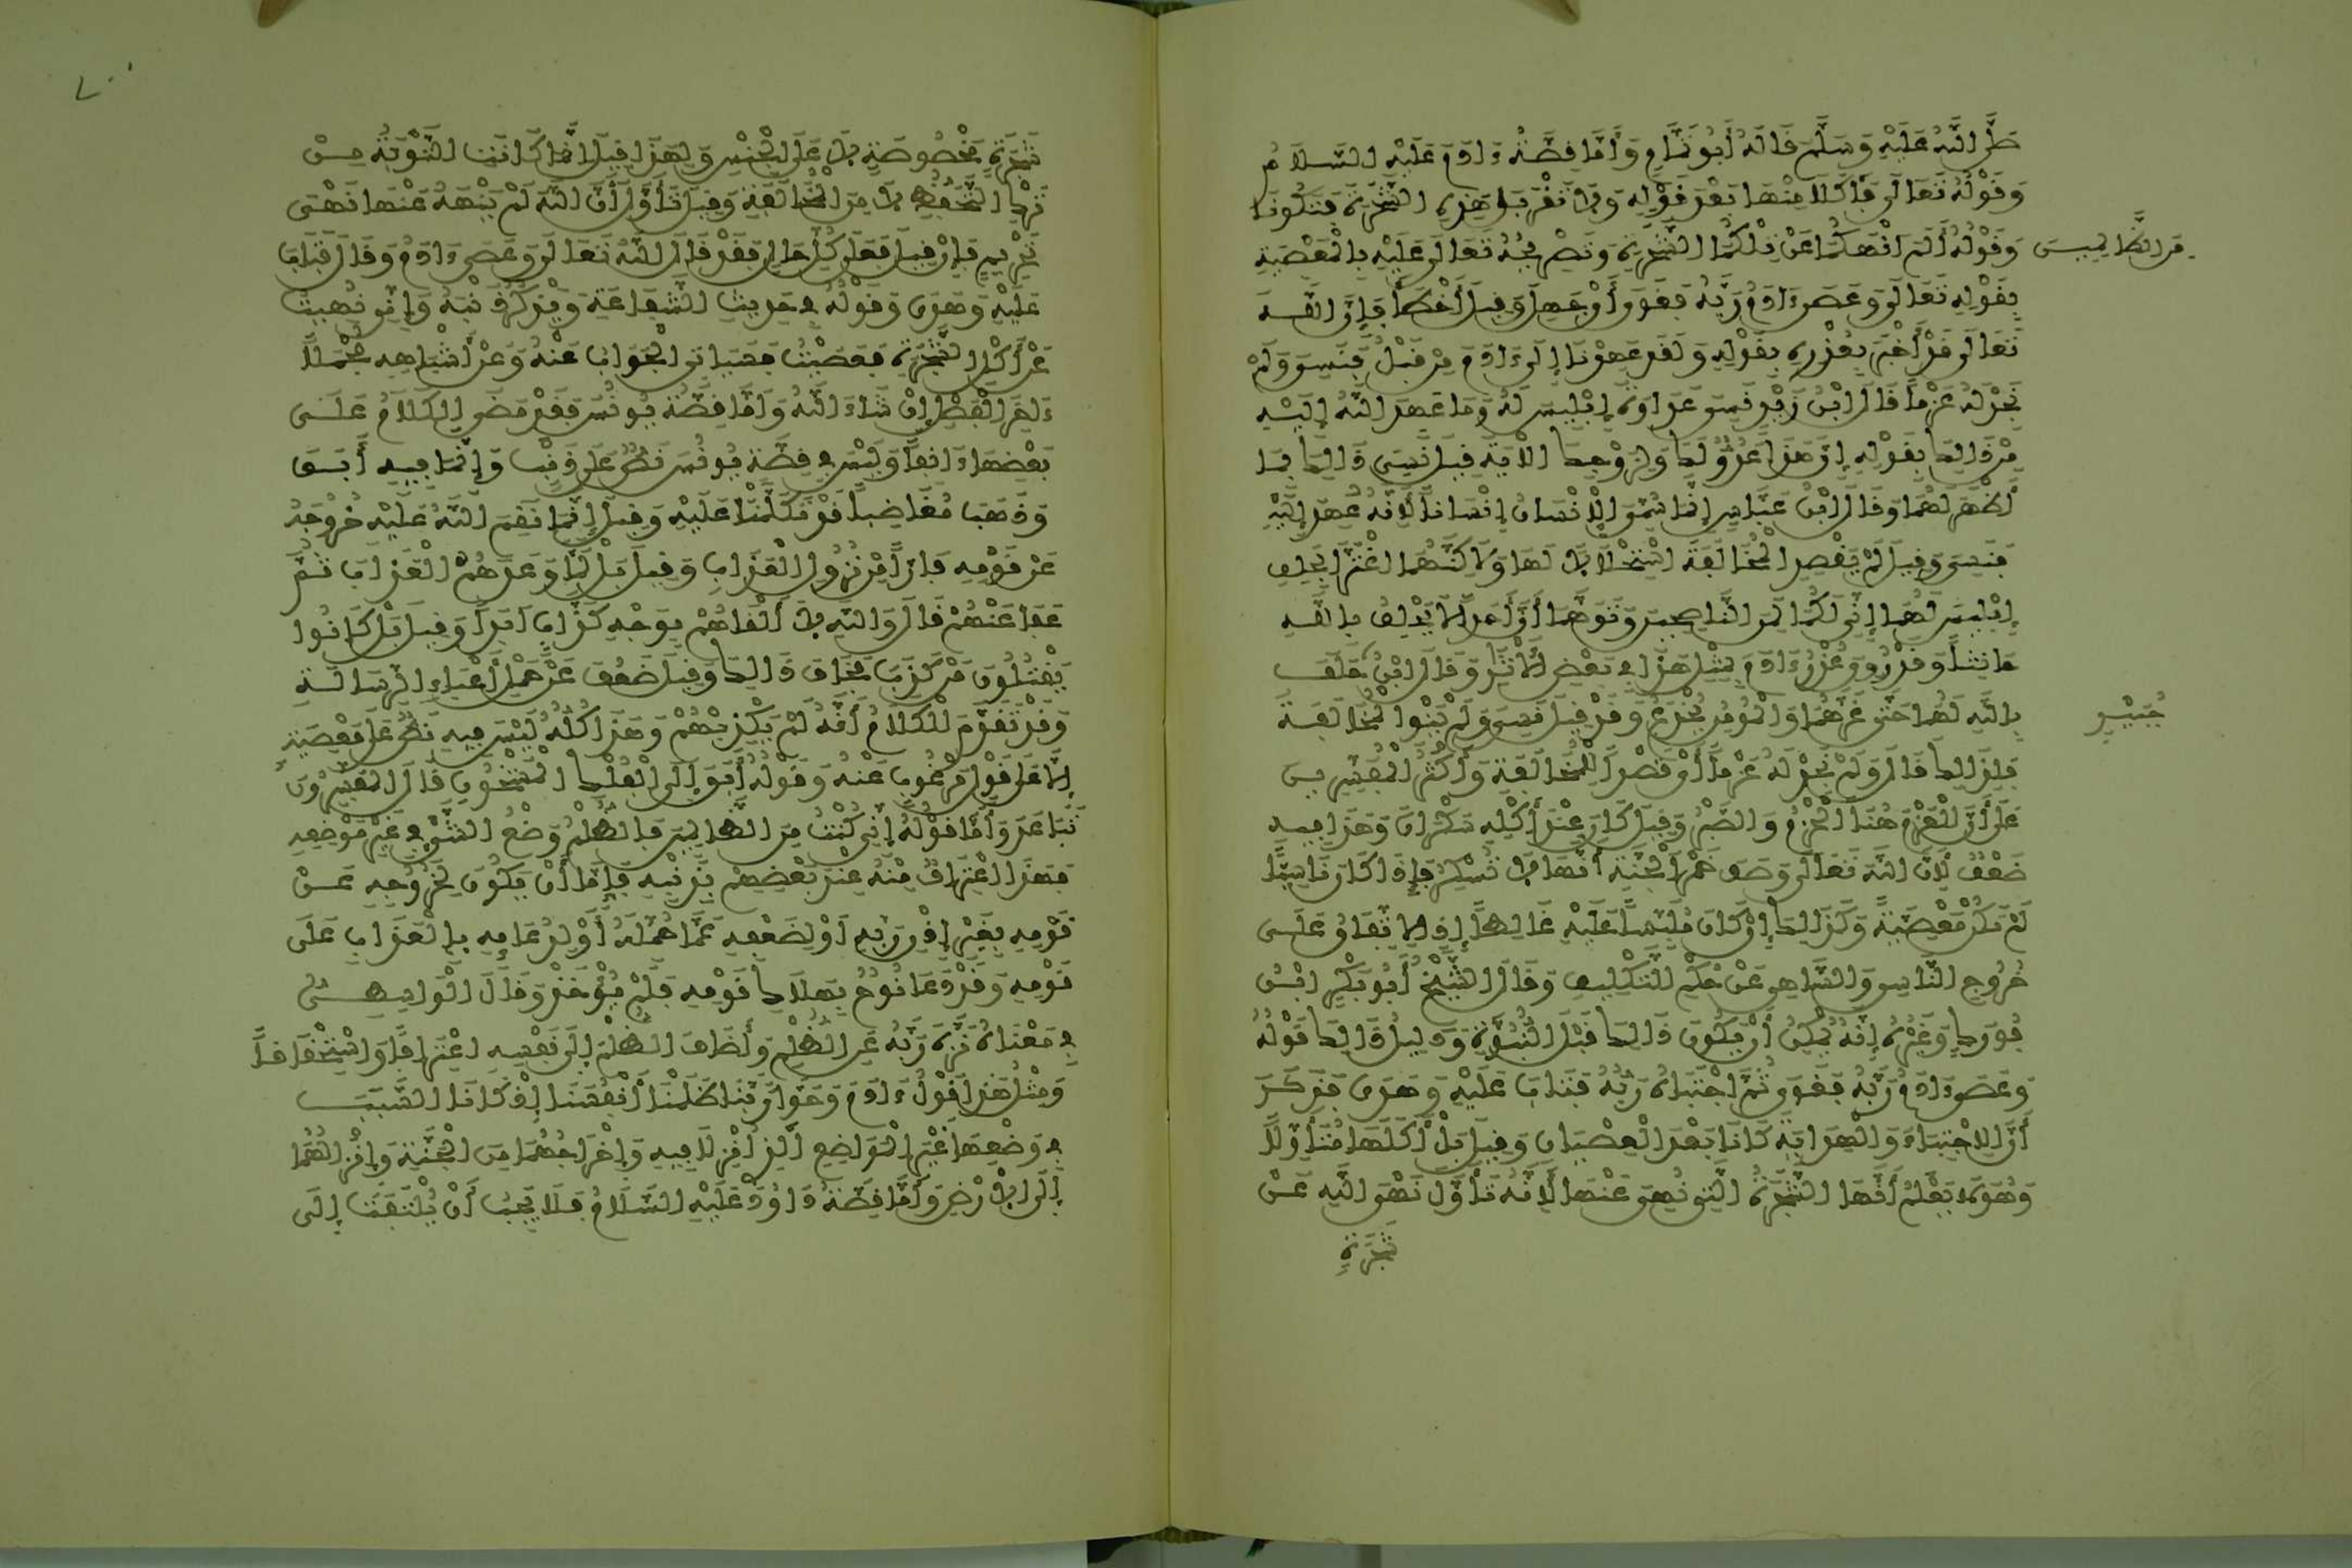 صَلَّى اللَّهُ عَلَيْهِ وَسَلَّمَ قَالَهُ أَبُو تَمَّامٍ وَأَمَّا قِصَّةُ ءَادَمَ عَلَيْهِ السَّلَامُ
وَقَوْلُهُ تَعَالَى فَأَكَلَا مِنْهَا بَعْدَ قَوْلِهِ وَلَا تَقْرَبَا هَذِهِ الشَّجَرَةَ فَتَكُونَا
مِنَ الظَّالِمِينَ
وَقَوْلُهُ أَلَمْ أَنْهَكُمَا عَنْ تِلْكُمَا الشَّجَرَةِ وَتَصْرِيحُهُ تَعَالَى عَلَيْهِ بِالْمَعْصِيَةِ
بِقَوْلِهِ تَعَالَى وَعَصَى ءَادَمُ رَبَّهُ فَغَوَى أَيْ جَهِلَ وَقِيلَ أَخْطَأَ فَإِنَّ اللَّهَ
تَعَالَى قَدْ أَخْبَرَ بِعُذْرِهِ بِقَوْلِهِ وَلَقَدْ عَهِدْنَا إِلَى ءَادَمَ مِنْ قَبْلُ فَنَسِيَ وَلَمْ
نَجِدْ لَهُ عَزْمًا قَالَ ابْنُ زَيْدٍ نَسِيَ عَدَاوَةَ إِبْلِيسَ لَهُ وَمَا عَهِدَ اللَّهُ إِلَيْهِ
مِنْ ذَالِكَ بِقَوْلِهِ إِنَّ هَذَا عَدُوٌّ لَكَ وَلِزَوْجِكَ الْآيَةَ قِيلَ نَسِيَ ذَالِكَ بِمَا
أَظْهَرَ لَهُمَا وَقَالَ ابْنُ عَبَّاسٍ إِنَّمَا سُمِّيَ الْإِنْسَانُ إِنْسَانًا لِأَنَّهُ عُهِدَ إِلَيْهِ
فَنَسِيَ وَقِيلَ لَمْ يَقْصِدِ الْمُخَالَفَةَ اسْتِحْلَالًا لَهَا وَلَكِنَّهُمَا اغْتَرَّا بِحَلِفِ
إِبْلِيسَ لَهُمَا إِنِّي لَكُمَا لَمِنَ النَّاصِحِينَ وَتَوَهَّمَا أَنَّ أَحَدًا لَا يَحْلِفُ بِاللَّهِ
حَانِثًا وَقَدْ رُوِيَ عُذْرُ ءَادَمَ بِمِثْلِ هَذَا فِي بَعْضِ الْآثَارِ وَقَالَ ابْنُ حَلَفَ
جُبَيْرٍ
بِاللَّهِ لَهُمَا حَتَّى غَرَّهُمَا وَالْمُؤْمِنُ يُخْدَعُ وَقَدْ قِيلَ نَسِيَ وَلَمْ يَنْوِ الْمُخَالَفَةَ
فَلِذَالِكَ قَالَ وَلَمْ نَجِدْ لَهُ عَزْمًا أَيْ قَصْدًا لِلْمُخَالَفَةِ وَأَكْثَرُ الْمُفَسِّرِينَ
عَلَى أَنَّ الْعَزْمَ هُنَا الْحَزْمُ وَالصَّبْرُ وَقِيلَ كَانَ عِنْدَ أَكْلِهِ سَكْرَانَ وَهَذَا فِيهِ
ضَعْفٌ لِأَنَّ اللَّهَ تَعَالَى وَصَفَ خَمْرَ الْجَنَّةِ أَنَّهَا لَا تُسْكِرُ فَإِذَا كَانَ نَاسِيًا
لَمْ تَكُنْ مَعْصِيَةً وَكَذَالِكَ إِنْ كَانَ مُلَبَّسًا عَلَيْهِ غَالِطًا إِذِ الِاتِّفَاقُ عَلَى
خُرُوجِ النَّاسِي وَالسَّاهِي عَنْ حُكْمِ التَّكْلِيفِ وَقَالَ الشَّيْخُ أَبُو بَكْرِ ابْنُ
فُورَكٍ وَغَيْرُهُ إِنَّهُ يُمْكِنُ أَنْ يَكُونَ ذَالِكَ قَبْلَ النُّبُوَّةِ وَدَلِيلُ ذَالِكَ قَوْلُهُ
وَعَصَى ءَادَمُ رَبَّهُ فَغَوَى ثُمَّ اجْتَبَاهُ رَبُّهُ فَتَابَ عَلَيْهِ وَهَدَى فَذَكَرَ
أَنَّ الِاجْتِبَاءَ وَالْهِدَايَةَ كَانَا بَعْدَ الْعِصْيَانِ وَقِيلَ بَلْ أَكَلَهَا مُتَأَوِّلًا
وَهُوَ لَا يَعْلَمُ أَنَّهَا الشَّجَرَةُ الَّتِي نُهِيَ عَنْهَا لِأَنَّهُ تَأَوَّلَ نَهْيَ اللَّهِ عَنْ
شَجَرَةٍ
٧٠٠
شَجَرَةٍ مَخْصُوصَةٍ لَا عَلَى الْجِنْسِ وَلِهَذَا قِيلَ إِنَّمَا كَانَتِ التَّوْبَةُ مِنْ
تَرْكِ التَّحَفُّظِ لَا مِنَ الْمُخَالَفَةِ وَقِيلَ تَأَوَّلَ أَنَّ اللَّهَ لَمْ يَنْهَهُ عَنْهَا نَهْيَ
تَحْرِيمٍ فَإِنْ قِيلَ فَعَلَى كُلِّ حَالٍ فَقَدْ قَالَ اللَّهُ تَعَالَى وَعَصَى ءَادَمُ وَقَالَ فَتَابَ
عَلَيْهِ وَهَدَى وَقَوْلُهُ فِي حَدِيثِ الشَّفَاعَةِ وَيَذْكُرُ ذَنْبَهُ وَإِنِّي نُهِيتُ
عَنْ أَكْلِ الشَّجَرَةِ فَعَصَيْتُ فَسَيَأْتِي الْجَوَابُ عَنْهُ وَعَنْ أَشْبَاهِهِ مُجْمَلًا
ءَاخِرَ الْفَصْلِ إِنْ شَاءَ اللَّهُ وَأَمَّا قِصَّةُ يُونُسَ فَقَدْ مَضَى الْكَلَامُ عَلَى
بَعْضِهَا ءَانِفًا وَلَيْسَ فِي قِصَّةِ يُونُسَ نَصٌّ عَلَى ذَنْبٍ وَإِنَّمَا فِيهِ أَبَقَ
وَذَهَبَ مُغَاضِبًا قَدْ تَكَلَّمْنَا عَلَيْهِ وَقِيلَ إِنَّمَا نَقَمَ اللَّهُ عَلَيْهِ خُرُوجَهُ
عَنْ قَوْمِهِ فَارًّا مِنْ نُزُولِ الْعَذَابِ وَقِيلَ بَلْ لَمَّا وَعَدَهُمُ الْعَذَابَ ثُمَّ
عَفَا عَنْهُمْ قَالَ وَاللَّهِ لَا أَلْقَاهُمْ بِوَجْهِ كَذَّابٍ أَبَدًا وَقِيلَ بَلْ كَانُوا
يَقْتُلُونَ مَنْ كَذَبَ فَخَافَ ذَالِكَ وَقِيلَ ضَعُفَ عَنْ حَمْلِ أَعْبَاءِ الرِّسَالَةِ
وَقَدْ تَقَدَّمَ الْكَلَامُ أَنَّهُ لَمْ يَكْذِبْهُمْ وَهَذَا كُلُّهُ لَيْسَ فِيهِ نَصٌّ عَلَى مَعْصِيَةٍ
إِلَّا عَلَى قَوْلٍ مَرْغُوبٍ عَنْهُ وَقَوْلُهُ أَبَقَ إِلَى الْفُلْكِ الْمَشْحُونِ قَالَ الْمُفَسِّرُونَ
تَبَاعَدَ وَأَمَّا قَوْلُهُ إِنِّي كُنْتُ مِنَ الظَّالِمِينَ فَالظُّلْمُ وَضْعُ الشَّيْءِ فِي غَيْرِ مَوْضِعِهِ
فَهَذَا اعْتِرَافٌ مِنْهُ عِنْدَ بَعْضِهِمْ بِذَنْبِهِ فَإِمَّا أَنْ يَكُونَ لِخُرُوجِهِ عَنْ
قَوْمِهِ بِغَيْرِ إِذْنِ رَبِّهِ أَوْ لِضَعْفِهِ عَمَّا حُمِّلَهُ أَوْ لِدُعَائِهِ بِالْعَذَابِ عَلَى
قَوْمِهِ وَقَدْ دَعَا نُوحٌ بِهَلَاكِ قَوْمِهِ فَلَمْ يُؤَاخَذْ وَقَالَ الْوَاسِطِيُّ
فِي مَعْنَاهُ نَزَّهَ رَبَّهُ عَنِ الظُّلْمِ وَأَضَافَ الظُّلْمَ إِلَى نَفْسِهِ اعْتِرَافًا وَاسْتِحْقَاقًا
وَمِثْلُ هَذَا قَوْلُ ءَادَمَ وَحَوَّاءَ رَبَّنَا ظَلَمْنَا أَنْفُسَنَا إِذْ كَانَا السَّبَبَ
فِي وَضْعِهَا غَيْرَ الْمَوَاضِعِ الَّذِي أُنْزِلَا فِيهِ وَإِخْرَاجُهُمَا مِنَ الْجَنَّةِ وَإِنْزَالُهُمَا
إِلَى الْأَرْضِ وَأَمَّا قِصَّةُ دَاوُدَ عَلَيْهِ السَّلَامُ فَلَا يَجِبُ أَنْ يُلْتَفَتَ إِلَى